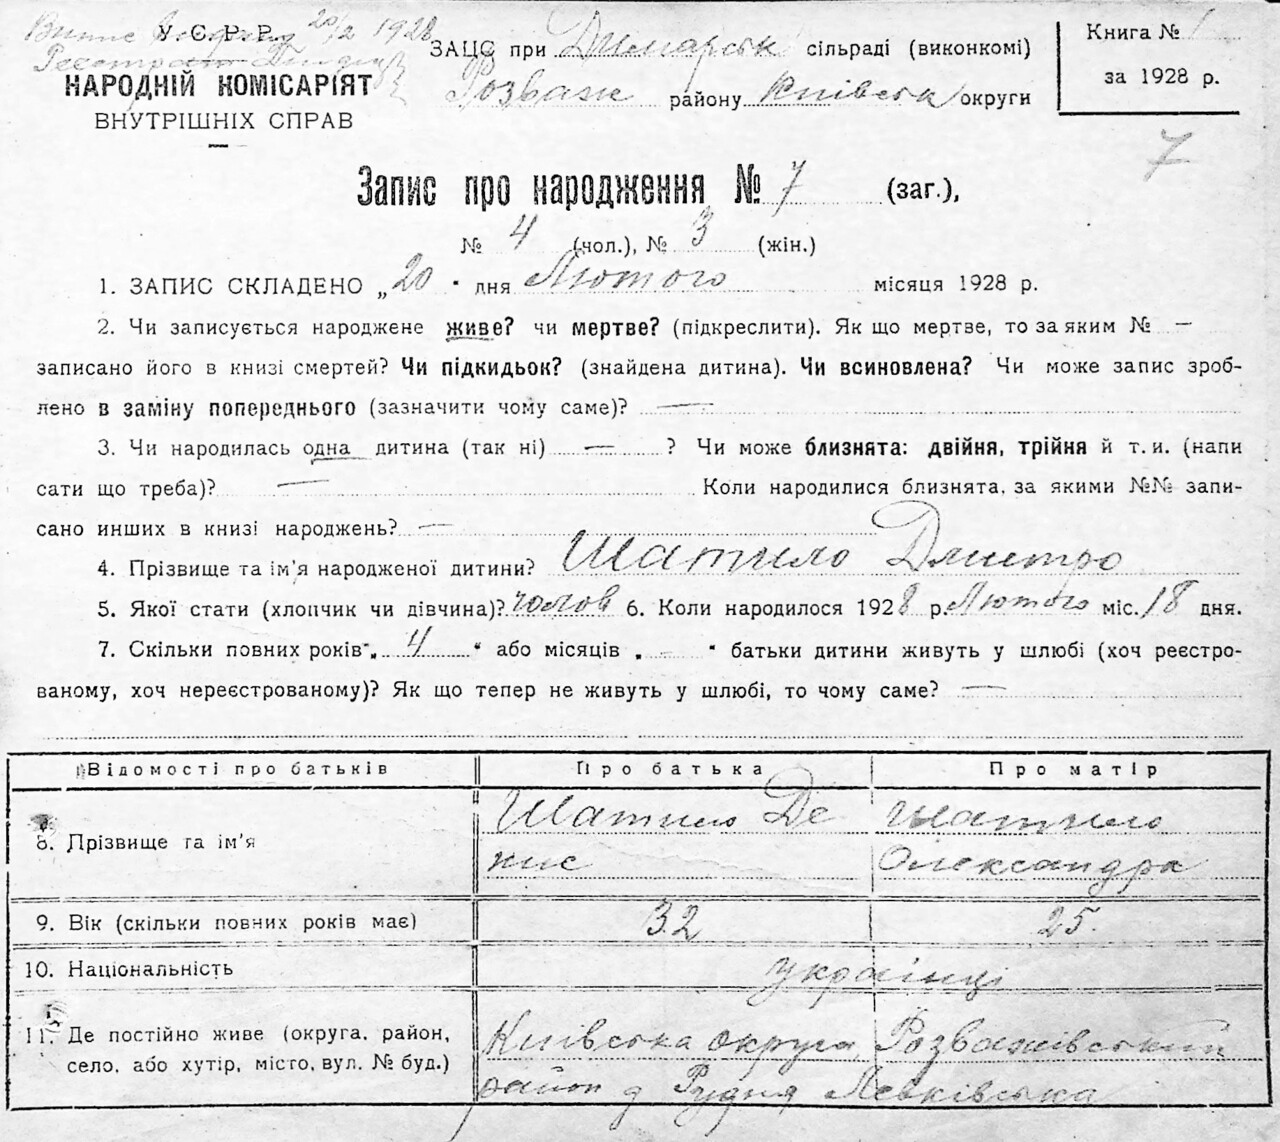 Випис 20/2 1928
У.С.Р.Р.
НАРОДНІЙ КОМІСАРІЯТ
ВНУТРІШНІХ СПРАВ
ЗАЦС при Димарськ сільраді (виконкомі)
Розваж району Київська округи
Книга № 1
за 1928 р.
7
Запис про народження № 7 (заг.),
№ 4 (чол.), № 3 (жін.)
1. ЗАПИС СКЛАДЕНО „20" дня Лютого місяця 1928 р.
2. Чи записується народжене живе? чи мертве? (підкреслити). Як що мертве, то за яким № —
записано його в книзі смертей? Чи підкидьок? (знайдена дитина). Чи всиновлена? Чи може запис зроб-
лено в заміну попереднього (зазначити чому саме)? —
3. Чи народилась одна дитина (так ні) — ? Чи може близнята: двійня, трійня й т.и. (напи
сати що треба)? — Коли народилися близнята, за якими №№ запи-
сано инших в книзі народжень? —
4. Прізвище та ім'я народженої дитини? Шатило Дмитро
5. Якої стати (хлопчик чи дівчина)? чолов 6. Коли народилося 1928 р. Лютого міс. 18 дня.
7. Скільки повних років „ 4 " або місяців „ - " батьки дитини живуть у шлюбі (хоч реєстро-
ваному, хоч нереєстрованому)? Як що тепер не живуть у шлюбі, то чому саме? —
Відомості про батьків Про батька Про матір
8. Прізвище та ім'я Шатило Де
нис Шатило
Олександра
9. Вік (скільки повних років має) 32 25.
10. Національність українці
11. Де постійно живе (округа, район,
село, або хутір, місто, вул. № буд.) Київська округа, Розважівський
район д Рудня Левківська